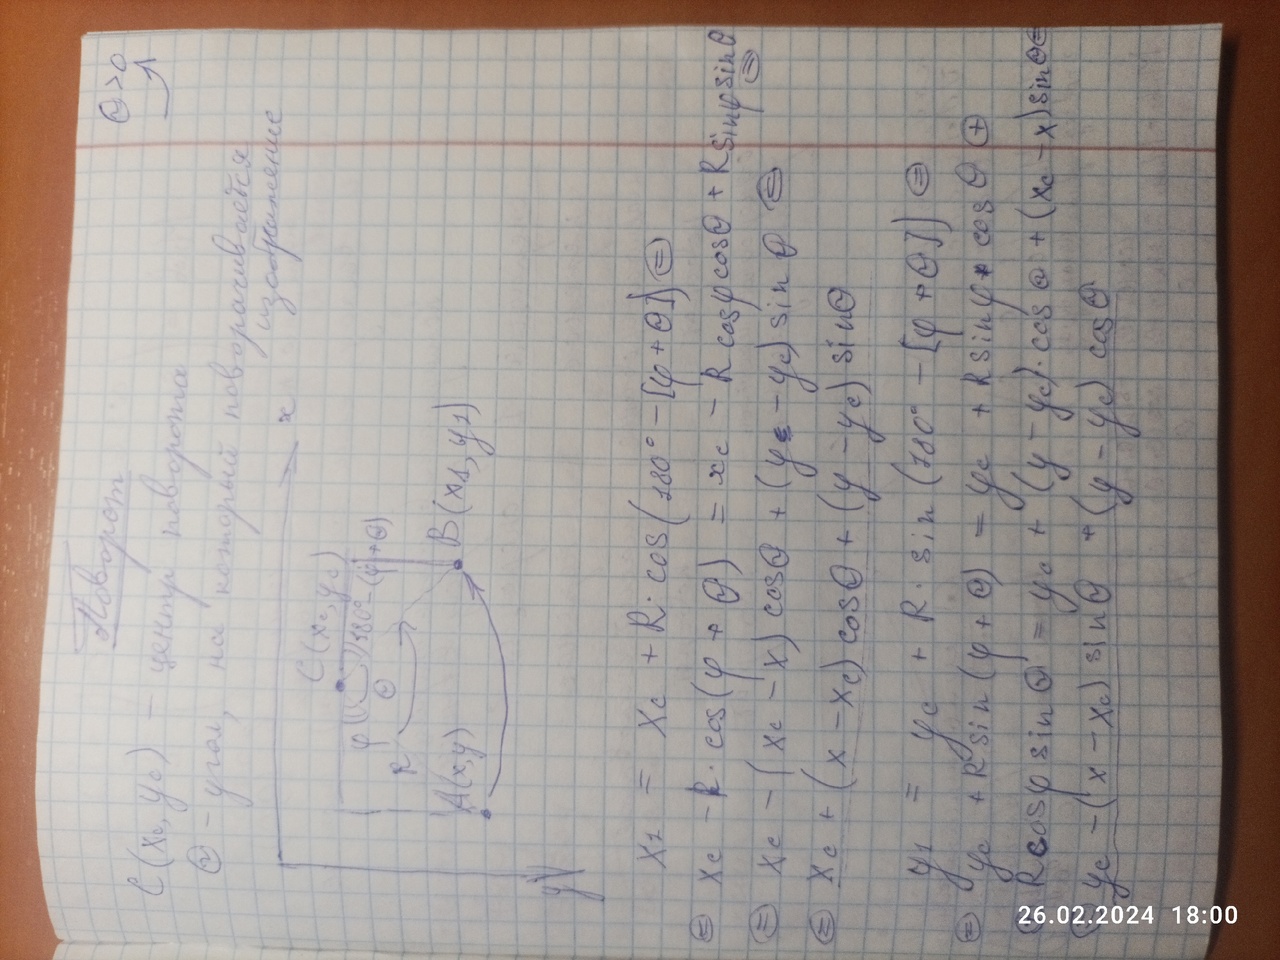 Поворот
Θ>0
C(xc, yc) – центр поворота
Θ - угол, на который поворачивается
изображение
x
C(xc, yc)
φ
180°-(φ+Θ)
Θ
R
A(x,y)
B(x1, y1)
y
x1 = xc + R·cos(180° - [φ+Θ]) ⊜
⊜ xc - R·cos(φ + Θ) = xc - R cosφ cosΘ + R sinφ sinΘ ⊜
⊜ xc - (xc - x) cosΘ + (y - yc) sin Θ ⊜
⊜ xc + (x - xc) cosΘ + (y - yc) sinΘ
y1 = yc + R·sin(180° - [φ+Θ]) ⊜
⊜ yc + R sin(φ+Θ) = yc + R sinφ· cosΘ ⊕
R cosφ sinΘ = yc + (y - yc)·cosΘ + (xc - x) sinΘ ⊜
⊜ yc - (x - xc) sinΘ + (y - yc) cosΘ
26.02.2024 18:00